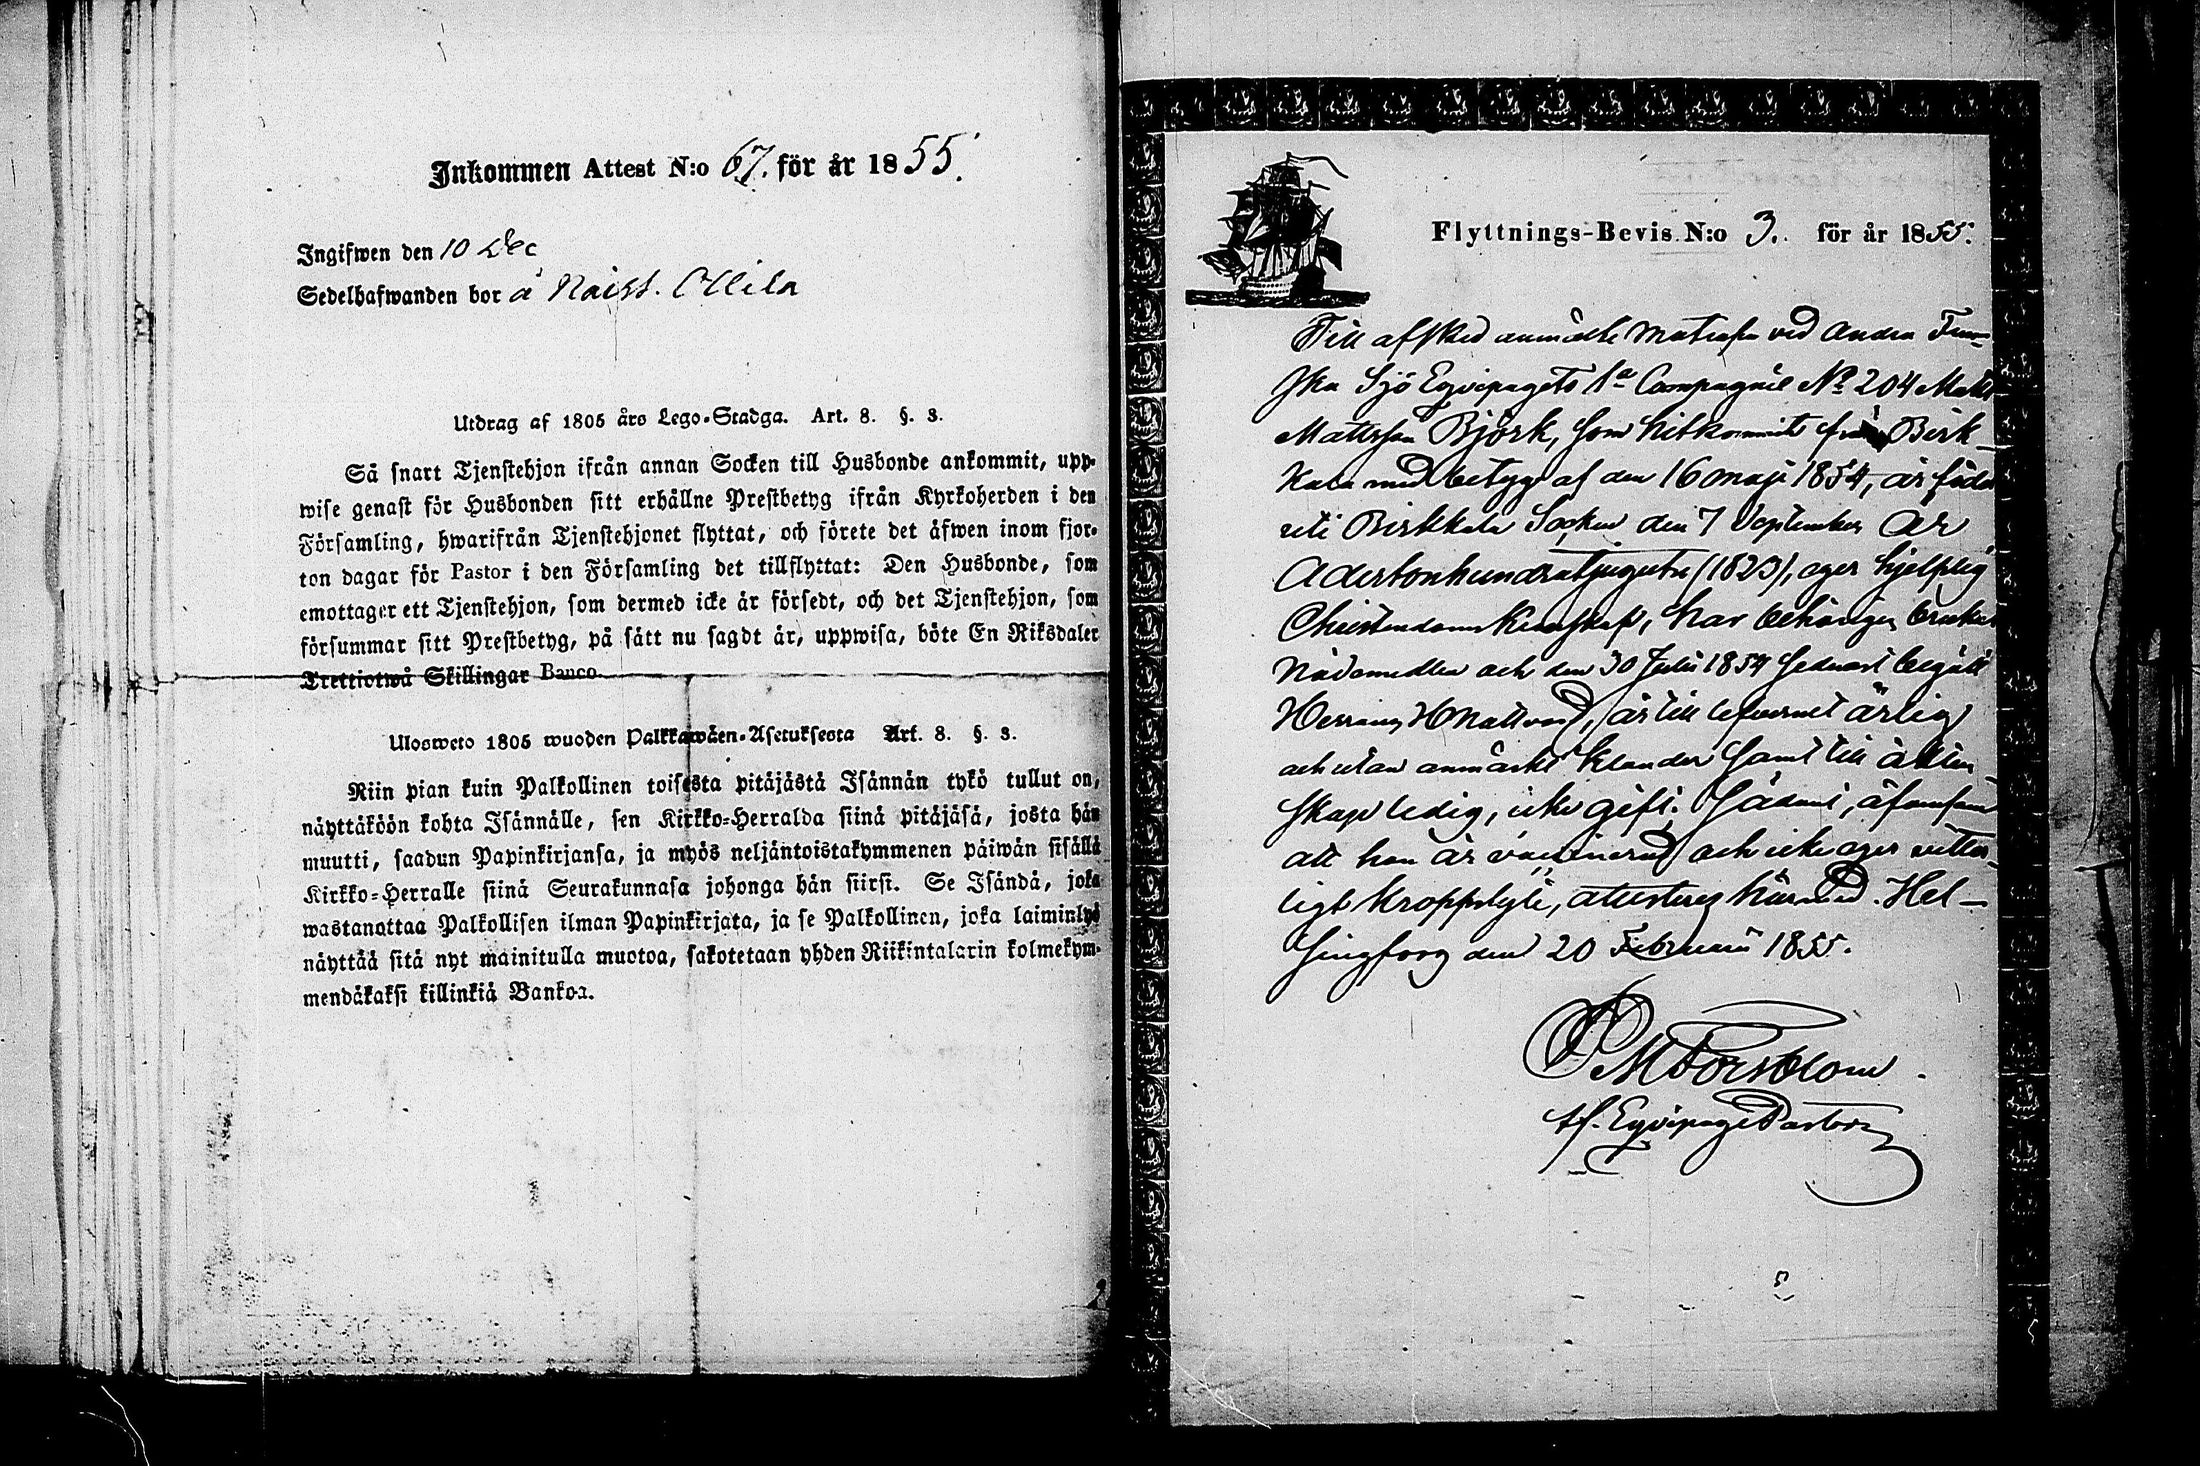 Inkommen Attest N:o 67. för år 1855.
Ingifwen den 10 Dec
Sedelhafwanden bor å Naist. Ollila
Utdrag af 1805 års Lego-Stadga. Art. 8. §. 3.
Så snart Tjenstehjon ifrån annan Socken till Husbonde ankommit, upp-
wise genast för Husbonden sitt erhållne Prestbetyg ifrån Kyrkoherden i den
Församling, hwarifrån Tjenstehjonet flyttat, och förete det äfwen inom fjor-
ton dagar för Pastor i den Församling det tillflyttat: Den Husbonde, som
emottager ett Tjenstehjon, som dermed icke är försedt, och det Tjenstehjon, som
försummar sitt Prestbetyg, på sätt nu sagdt är, uppwisa, böte En Riksdaler
Trettiotwå Skillingar Banco.
Ulosweto 1805 wuoden Palkkawäen-Asetuksesta Art. 8. §. 3.
Niin pian kuin Palkollinen toisesta pitäjästä Isännän tykö tullut on,
näyttäköön kohta Isännälle, sen Kirkko-Herralda siinä pitäjäsä, josta hän
muutti, saadun Papinkirjansa, ja myös neljäntoistakymmenen päiwän sisällä
Kirkko-Herralle siinä Seurakunnasa johonga hän siirsi. Se Isändä, joka
wastanottaa Palkollisen ilman Papinkirjata, ja se Palkollinen, joka laiminlyö
näyttää sitä nyt mainitulla muotoa, sakotetaan yhden Riikintalarin kolmekym-
mendäkaksi killinkiä Bankoa.
Flyttnings-Bevis N:o 3. för år 1855.
Till afsked anmälte Matrosen ved Andra Fin-
ska Sjö Eqvipagets 1a Compagnie No 204 Matts
Mattsson Björk, som hitkommit från Birk-
kala med betyg af den 16 Maji 1854, är född
uti Birkkala Socken den 7 September År
Adertonhundratjugutre (1823), äger hjelplig
Christendoms Kunskap, har behörigen brukat
Nådemedlen och den 30 Julii 1854 sednast begått
Herrans H Nattvard, är till lefvernet ärlig
och utan anmärkt klander samt till äkten-
skap ledig, icke gift. Sådant, äfvensom
att han är vaccinerad och icke äger vitter-
ligt kroppslyte, attesteras härmed. Hel-
singfors den 20 Februarii 1855.
M Forsblom
tf. Eqvipage Pastor